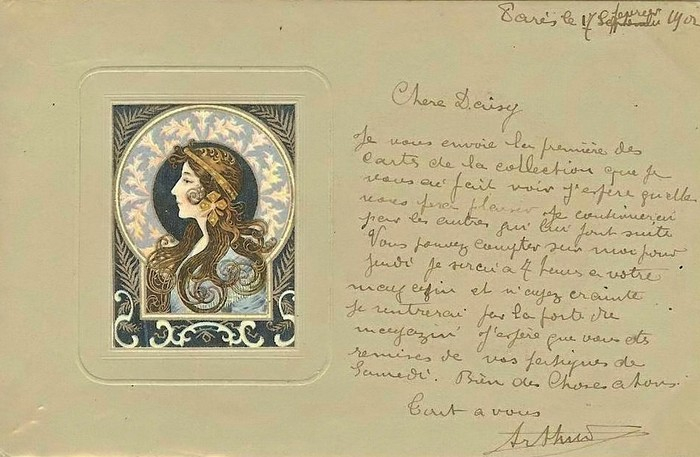 Paris le 17 février 1902
Chere Daisy
Je vous envoie la première des
cartes de la collection que je
vous ai fait voir j'espère qu'elle
vous fera plaisir Je continuerai
par les autres qui lui font suite
Vous pouvez compter sur moi pour
jeudi je serai a 7 heures a votre
magasin et n'ayez crainte
je rentrerai par la porte du
magazin j'espère que vous etes
remises de vos fatigues de
Samedi. Bien des Choses a tous.
Tout a vous
Arthur